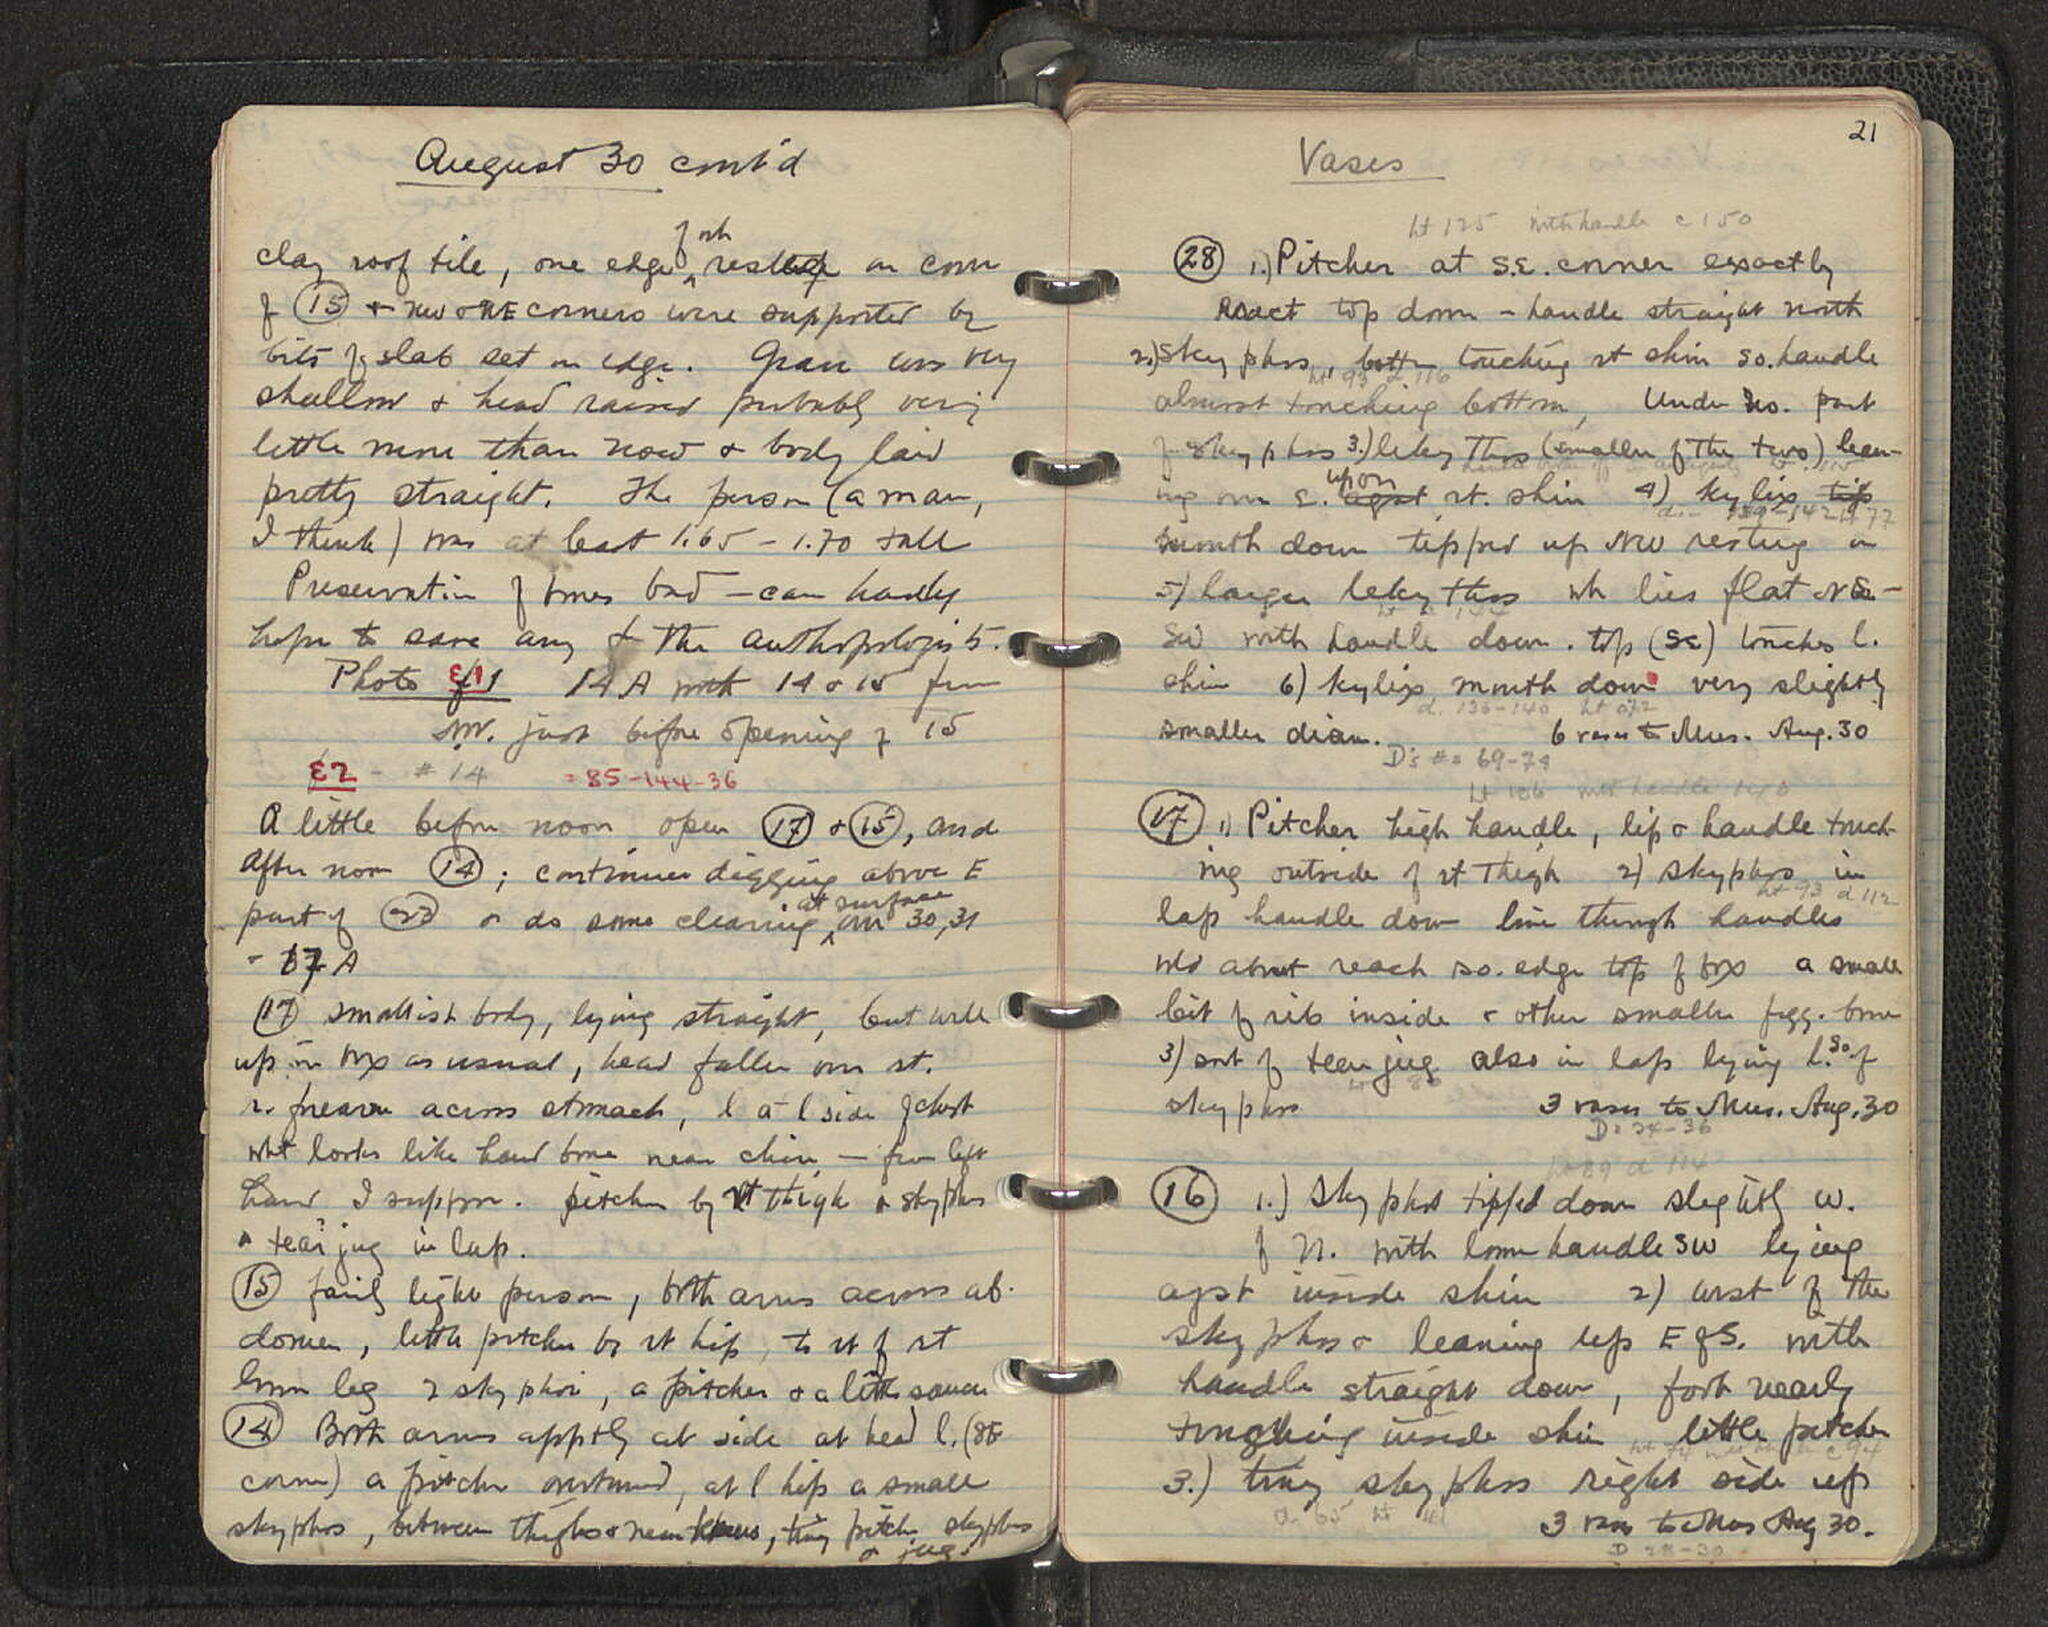 August 30 cont'd
clay roof tile, one edge of wh rested on corn
of (15) + NW & NE corners were supported by
bits of slab set on edge. Grave was very
shallow & head raised probably very
little more than now & body laid
pretty straight. The person (a man,
I think) was at least 1.65 - 1.70 tall
Preservation of bones bad - can hardly
hope to save any for the anthropologists.
Photo E1 14A with 14 & 15 from
SW. just before opening of 15
E2 - #14 = 85-144-36
A little before noon open (17) & (15), and
after noon (14); continue digging above E
part of (23) & do some clearing at surface over 30, 31
- 17 A
(17) smallish body, lying straight, but well
up in box as usual, head fallen over rt.
r. forearm across stomach, l at l side of chest
wht looks like hand bone near chin - from left
hand I suppose. pitcher by rt thigh & skyphos
& tear? jug in lap.
(15) fairly light person, both arms across ab-
domen, little pitcher by rt hip, to rt of rt
lower leg 2 skyphoi, a pitcher & a little saucer
(14) Both arms apptly at side at head l. (SE
corner) a pitcher overturned, at l hip a small
skyphos, between thighs & near knees, tiny pitcher skyphos
& jug.
21
Vases
ht 125 with handle c 150
(28) 1.) Pitcher at S.E. corner exactly
top down - handle straight north
2.) Skyphos, touching rt shin so. handle
ht 93 d 116
almost touching bottom, Under No. part
of skyphos 3.) lekythos (smaller of the two) lean-
ing over E. upon rt. shin 4) kylix
d. 139-142 ht 77
mouth down tipped up NW resting on
5) larger lekythos wh lies flat NE-
SW with handle down. top (SE) touches l.
shin 6) kylix mouth down very slightly
d. 136-140 ht 072
smaller diam. 6 vases to Mus. Aug. 30
D's #s 69-74
ht 106 with handle 140
(17) 1) Pitcher high handle, lip & handle touch-
ing outside of rt thigh 2) skyphos in
ht 93 d 112
lap handle down line through handles
wld about reach so. edge top of box a small
bit of rib inside & other smaller fragg. bone
3) sort of tear jug also in lap lying l. So of
skyphos 3 vases to Mus. Aug. 30
D: 34-36
ht 89 d 114
(16) 1.) Skyphos tipped down slightly W.
of N. with lower handle SW lying
agst inside shin 2) west of the
skyphos & leaning up E of S. with
handle straight down, foot nearly
touching inside shin little pitcher
3.) tiny skyphos right side up
d. 65 ht 41
3 vases to Mus Aug 30.
D 28-30